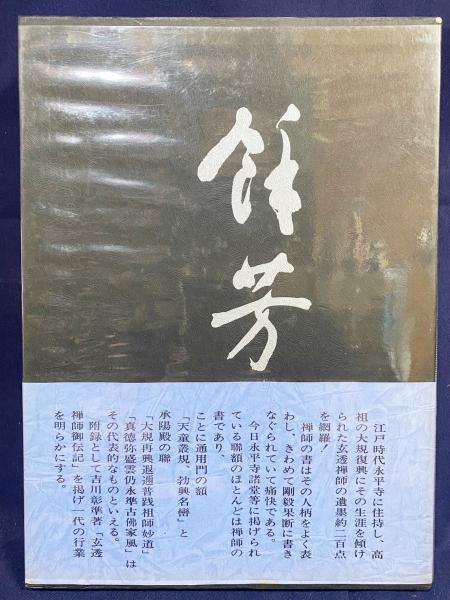 餘芳
江戸時代永平寺に住持し、高
祖の大規復興にその生涯を傾け
られた玄透禅師の遺墨約二百点
を網羅!
禅師の書はその人柄をよく表
わし、きわめて剛毅果断に書き
なぐられていて痛快である。
今日永平寺諸堂等に掲げられ
ている聯額のほとんどは禅師の
書であり、
ことに通用門の額
「天童叢規、勃興名巒」と
承陽殿の聯
「大規再興遐邇普践祖師妙道
「真徳弥盛雲仍永準古佛家風」は
その代表的なものといえる。
附録として吉川彰準著「玄透
禅師御伝記」を掲げ一代の行業
を明らかにする。